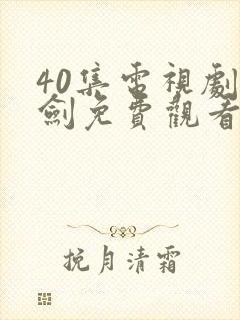 40集電視劇
劍免費觀看
挽月清霜